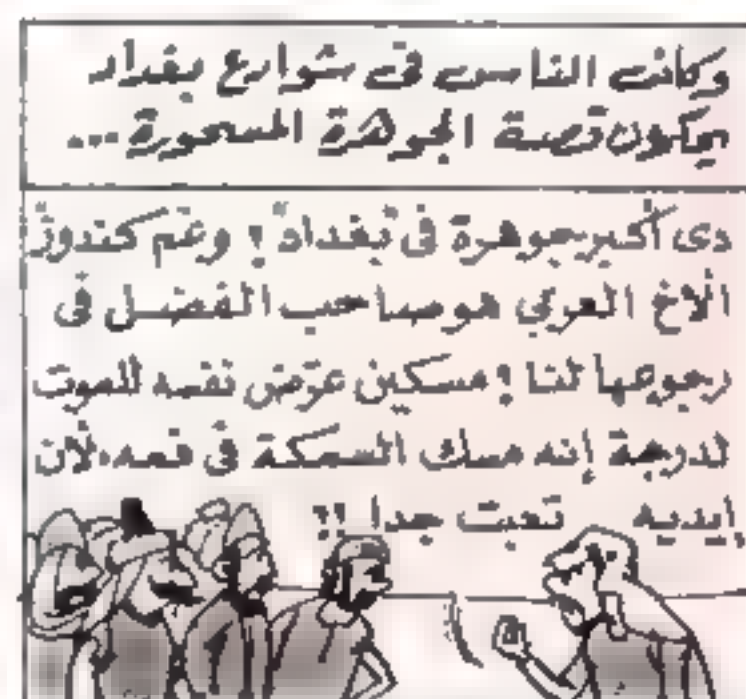 وكانت الناس فى شوارع بغداد
يحكون قصة الجوهرة المسحورة ...
دى أكبر جوهرة فى بغداد ! وعم كندوز
الأخ العربى هو صاحب الفضل فى
رجوعها لنا ! مسكين عرّض نفسه للموت
لدرجة إنه مسك السمكة فى فمه، لأن
إيديه تعبت جدا !!